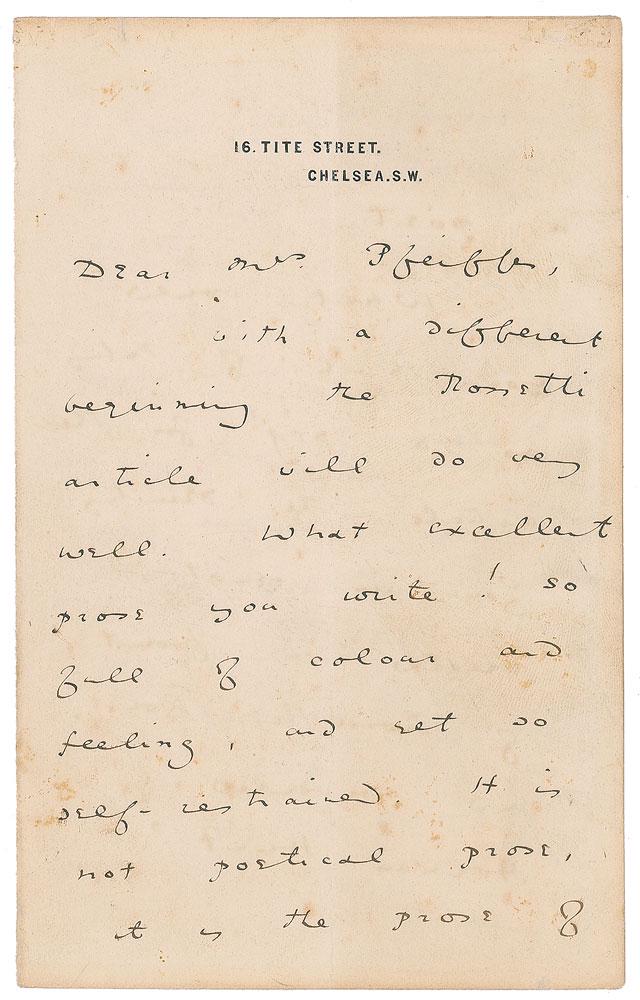 16. TITE STREET.
CHELSEA. S.W.
Dear Mrs. Pfeiffer,
with a different
beginning the Rossetti
article will do very
well. What excellent
prose you write! so
full of colour and
feeling, and yet so
self-restrained. It is
not poetical prose,
it is the prose of